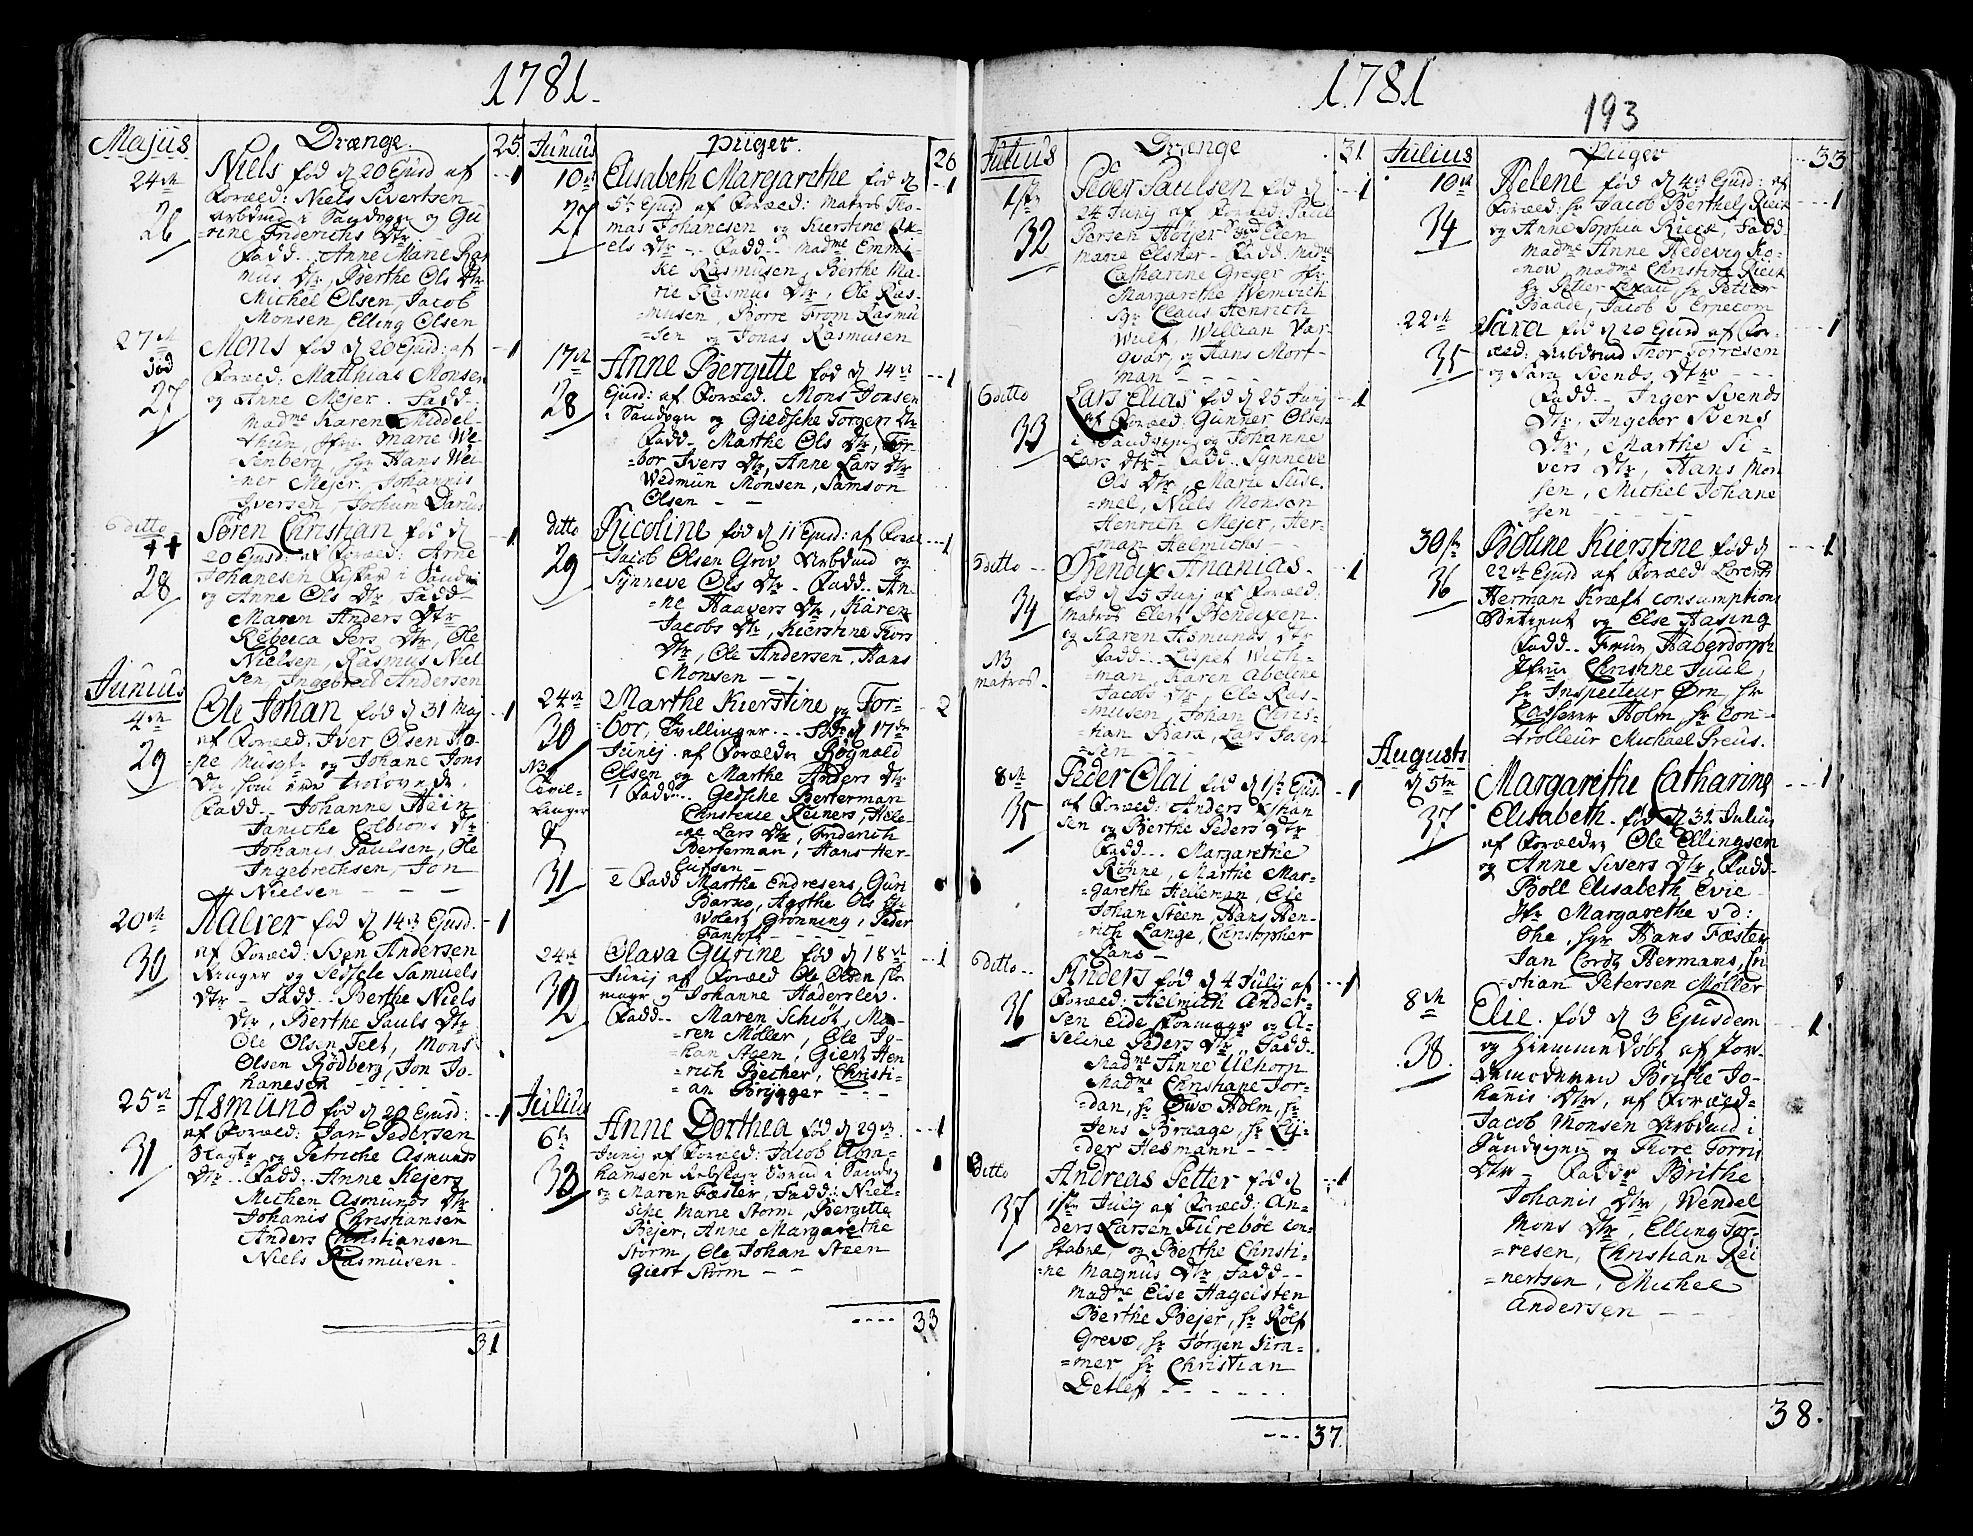 1781.
Majus
Drænge.
25
24de
Niels fød d 20 Ejusd af
1
26
Foræld: Niels Sivertsen
Arbdmd i Sandvigen og Gu
=rine Friderichs Dtr.
Fadd.. Anne Marie Ras
mus Dtr, Berthe Ols Dtr
Michel Olsen, Jacob
Monsen, Elling Olsen
27de
Mons fød d 20 Ejusd: af
1
død
27
Foræld: Matthias Monsen
og Anne Mejer. Fadd..
Madme Karen Middel-
thun Jfru Marie We-
=senberg, Sgr Hans Wei-
ner Mejer, Johannis
Iversen, Jochum Darius
ditto
Søren Christian fød d
1
28
20 Ejusd: af Foræld: Arne
Johanesen Fisker i Sandv
og Anne Ols Dtr Fadd..
Maren Anders Dtr
Rebecca Pers Dtr, Ole
Nielsen, Rasmus Niel
sen, Ingebrect Andersen
Junius
4de
Ole Johan fød d 31 Maj
1
29
af Foræld: Iver Olsen
og Johane Jons
Dtr som ere trolovede.
Fadd.. Johanne Hein
Janiche Colbions Dtr
Johanis Paulsen, Ole
Ingebrechsen, Jon
Nielsen
20de
Halver fød d 14de Ejusd.
1
30
af Foræld: Sven Andersen
og Sedsele Samuels
Dtr - Fadd.. Berthe Niels
Dtr, Berthe Pauls Dtr
Ole Olsen Telt, Mons
Olsen Rødberg, Jon Jo-
hanesen
25de
Asmund fød d 20 Ejusd:
1
31
af Foræld: Jan Pedersen
Slagtr og Petriche Asmunds
Dtr.. Fadd.. Anne Kejers
Michen Asmunds Dtr
Johanis Christiansen
Anders Christiansen
Niels Rasmusen
31
Junius
Piiger.
26
10de
Elisabeth Margarethe fød d
1
27
5te Ejusd af Foræld: Matros Tho
mas Johanesen og Kierstine Ax
els Dtr -.. Fadd.. Madme Emmi-
ke Rasmusen, Berthe Ma-
rie Rasmus Dtr, Ole Ras-
=musen, Børre From Rasmu
=sen og Jonas Rasmusen
17de
Anne Bergitte fød d 14de
1
28
Ejusd: af Foræld. Mons Jonsen
i Sandvigen og Giedsche Torgers Dtr
Fadd.. Marthe Ols Dtr, Tor-
=bor Ivers Dtr, Anne Lars Dtr
Wedmun Monsen, Samson
Olsen
ditto
Nicoline fød d 11 Ejusd: af Foræl
1
29
Jacob Olsen Grov Arbdmd og
Synneve Ols Dtr - Fadd.. An-
=ne Haavers Dtr, Karen
Jacobs Dtr, Kierstine Thors
Dtr, Ole Andersen, Hans
Monsen
24de
Marthe Kierstine og Tor-
2
30
=bor, Tvillinger... Fød d 17de
Junij. af Forældre Rognald
Olsen og Marthe Anders Dtr
NB
1 Fadd... Gedsche Berterman
Christense Reiners, Hele-
=ne Lars Dtr, Friderich
Berterman, Hans Her-
31
2 Fadd Marthe Endresens, Guri
Agathe Ols Dtr
Wolert Grønning, Peder
24de
Olava Gurine fød d 18de
1
32
Junij af Foræld Ole Olsen
magr og Johanne Hadersløv.
Fadd.. Maren Schiøt, Ma-
=ren Møller, Ole Jo-
=han Steen, Giert Hen
=rich Becher, Christi-
=an Brygger
Julius
6te
Anne Dorthea fød d 29de
1
33
Junij af Foræld: Jacob Abra-
hamsen i Sandvig
og Maren Fæster, Fadd: Niel-
sine Marie Storm, Bergitte
Bejer, Anne Margarethe
Storm, Ole Johan Steen
Giert Storm
33
1781
193
Julius
Drænge
31
1ste
Peder Paulsen fød d
1
32
24 Junij af Foræld: Paul
Persen Høyer og Elen
Marie Elsner - Fadd. Madme
Catharine Greger Jfr
Margarethe Wemrich
Sgr Claus Henrich
Wulf, William Var-
qvar, og Hans Mort-
man
6 ditto
Lars Elias fød d 25 Junij
1
33
af Foræld: Gunner Olsen
i Sandvigen og Johanne
Lars Dtr Fadd.. Synneve
Ols Dtr, Marie Suse-
mel, Niels Monsen
Henrich Mejer, Her-
=man Helmichs
ditto
Bendix Ananias
1
34
fød d 25 Junj af Foræld.
Matros Elert Bendixen
og Karen Asmunds Dtr
NB
Matros
Fadd... Lispet Wich-
man, Karen Abelone
Jacobs Dtr, Ole Ras-
=musen, Johan Chris-
=tian Bara, Lars Joep
=sen
8de
Peder Olai fød d 1ste Ejus.
1
35
af Foræld: Anders Estian
sen og Berthe Peders Dtr
Fadd... Margarethe
Rønne, Marthe Mar-
=garethe Heileman, Ole
Johan Steen, Hans Hen-
=rich Lange, Christopher
ditto..
Anders fød d 4 Julij af
1
36
Foræld: Helmich Ander-
sen Eide og A-
seline Peders Dtr, Fadd..
Madme Anne Ulhorp
Madme Christiane Jor-
=dan, Hr Owe Holm, Hr
Jens Bræage, Hr Ly-
=der Hesmann
Ditto
Andreas Petter fød d
1
37
1ste Julij af Foræld: An-
ders Larsen Furebøe Con-
stabel, og Berthe Christi-
=ne Magnus Dtr, Fadd..
Madme Else Hagelsten
Berthe Bejer, Hr Rolf
Greve, Hr Jørgen Kra-
=mer Hr Christian
Detlef
37
Julius
Piiger
33
10de
Helene fød d 4de Ejusd: af
1
34
Foræld: Hr Jacob Berthely Rieck
og Anne Sophia Rieck, Fadd
Madme Anne Hedevig Ko-
=now, Madme Christine Rieck
Hr Petter Lexau Hr Petter
Baade, Jacob v Erpecom
22de
Sara fød d 20 Ejusd af For-
1
35
æld: Arbdmd Thor Torresen
og Sara Svends Dtr
Fadd.. Inger Svends
Dtr, Ingebor Svens
Dtr, Marthe Si-
vers Dtr, Hans Mon
sen, Michel Johane
=sen
30te
Boline Kierstine fød d
1
36
22de Ejusd af Foræld: Lorents
Herman Kræft Consumptions
Betient og Else Hasing
Fadd.. Frue Haberdorph
Jfrue Christine Juul,
Hr Inspecteur Ørn, Hr
Casserer Holm, Hr Con-
trolleur Michael Preus.
Augusti
d 5te
Margarethe Catharina
1
37
Elisabeth. fød d 31 Julius
af Forældre Ole Ellingsen
og Anne Sivers Dtr, Fadd..
Boll Elisabeth Evie
Jfr Margarethe v d:
Ohe, Sgr Hans Fæster
Jan Cordt Hermans, Cri
=stian Petersen Møller
8de
Elie. fød d 3 Ejusdem
1
38.
og Hiemmedøbt af Jor-
demoderen Brithe Jo-
hanis Dtr, af Foræld-
Jacob Monsen Arbdmd i
Sandvigen og Thore Torris
Dtr - Faddr Brithe
Johanis Dtr, Wendel
Mons Dtr, Elling Tor-
=resen, Christian Rei
=nertsen, Michel
Andersen
38.